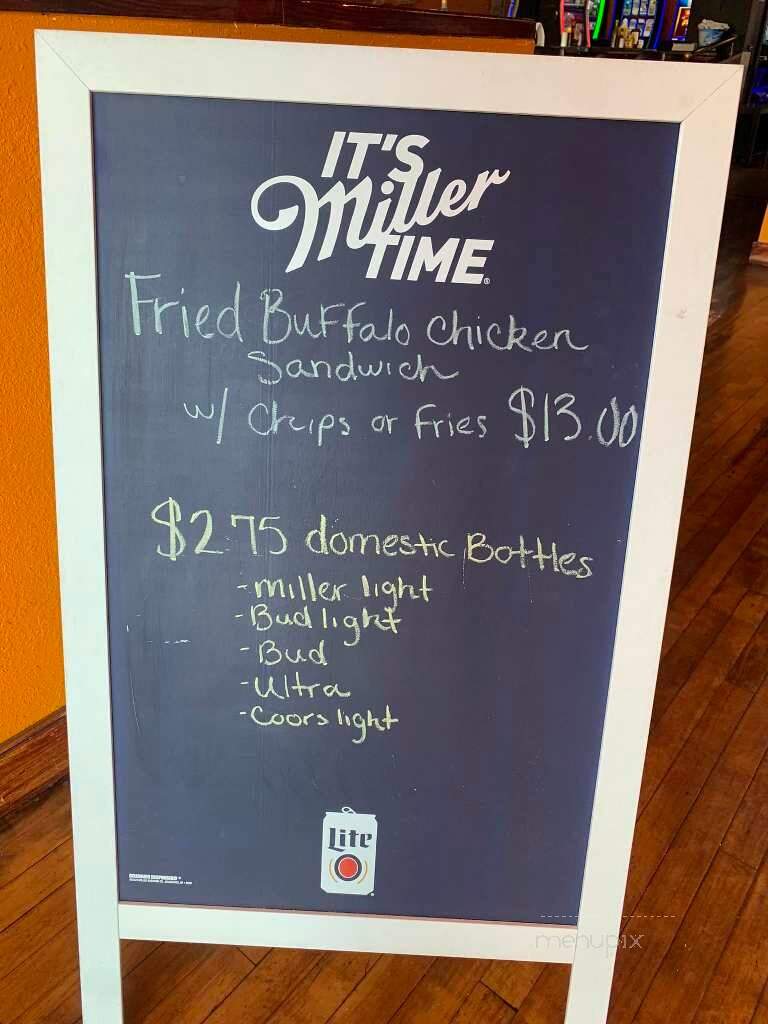 IT'S
Miller
TIME
Fried Buffalo chicken
Sandwich
w/ Chips or Fries $13.00
$2.75 domestic Bottles
- miller light
- Bud light
- Bud
- Ultra
- Coors light
Lite
menupix